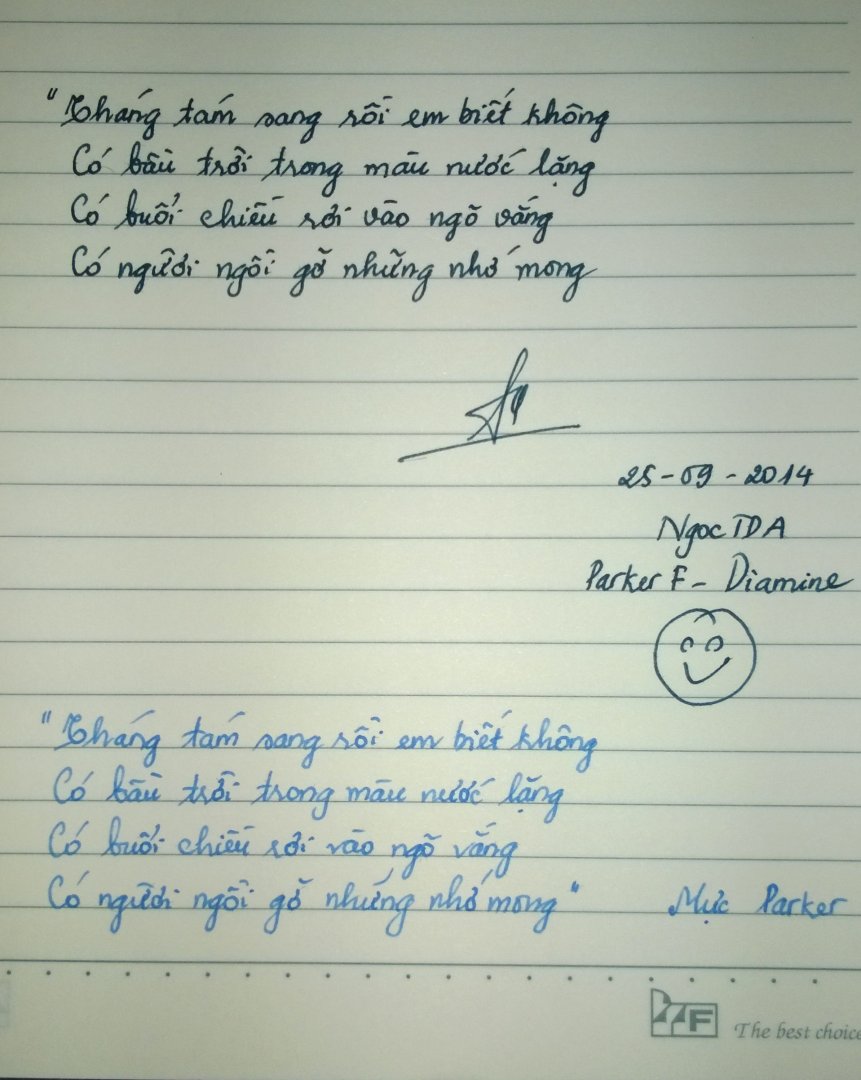 "Tháng tám sang rồi em biết không
Có bầu trời trong màu nước lặng
Có buổi chiều rơi vào ngõ vắng
Có người ngồi gỡ những nhớ mong
25-09-2014
Ngọc TDA
Parker F - Diamine
"Tháng tám sang rồi em biết không
Có bầu trời trong màu nước lặng
Có buổi chiều rơi vào ngõ vắng
Có người ngồi gỡ những nhớ mong" Mực Parker
The best choice